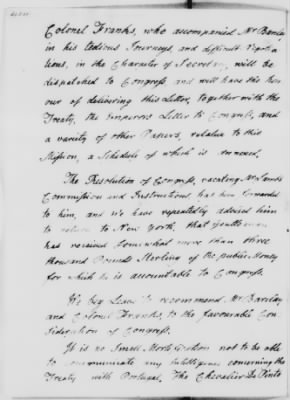 Colonel Franks, who accompanied Mr Barclay
in his tedious Journeys and difficult Negotia
tions, in the Character of Secretary, will be
dispatched to Congress and will have the hon
our of delivering this Letter, together with the
Treaty, the Emperors Letter to Congress, and
a variety of other Papers, relative to this
Mission, a Schedule of which is annexed.
The Resolution of Congress, vacating Mr Lambs
Commission and Instructions has been forwarded
to him, and we have repeatedly advised him
to return to New York, that Gentleman
has received somewhat more than three
thousand Pounds Sterling of the public Money
for which he is accountable to Congress.
We beg Leave to recommend Mr Barclay
and Colonel Franks, to the favourable Con
sideration of Congress.
It is no Small Mortification not to be able
to communicate any Intelligence concerning the
Treaty with Portugal, The Chevalier De Pinto